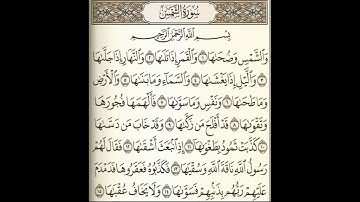 سُورَةُ الشَّمْسِ
بِسْمِ اللَّهِ الرَّحْمَٰنِ الرَّحِيمِ
وَالشَّمْسِ وَضُحَىٰهَا ١ وَالْقَمَرِ إِذَا تَلَىٰهَا ٢ وَالنَّهَارِ إِذَا جَلَّىٰهَا
٣ وَاللَّيْلِ إِذَا يَغْشَىٰهَا ٤ وَالسَّمَاءِ وَمَا بَنَىٰهَا ٥ وَالْأَرْضِ
وَمَا طَحَىٰهَا ٦ وَنَفْسٍ وَمَا سَوَّىٰهَا ٧ فَأَلْهَمَهَا فُجُورَهَا
وَتَقْوَىٰهَا ٨ قَدْ أَفْلَحَ مَن زَكَّىٰهَا ٩ وَقَدْ خَابَ مَن دَسَّىٰهَا
١٠ كَذَّبَتْ ثَمُودُ بِطَغْوَىٰهَا ١١ إِذِ انبَعَثَ أَشْقَىٰهَا ١٢ فَقَالَ لَهُمْ
رَسُولُ اللَّهِ نَاقَةَ اللَّهِ وَسُقْيَٰهَا ١٣ فَكَذَّبُوهُ فَعَقَرُوهَا فَدَمْدَمَ
عَلَيْهِمْ رَبُّهُم بِذَنبِهِمْ فَسَوَّىٰهَا ١٤ وَلَا يَخَافُ عُقْبَٰهَا ١٥